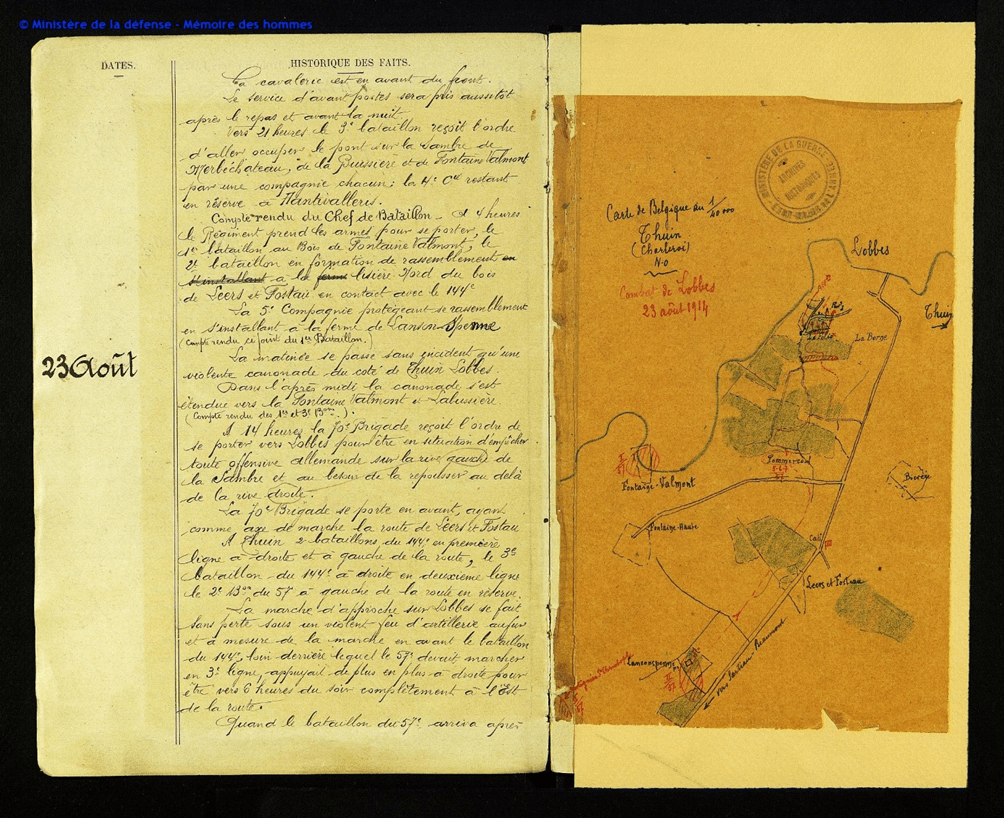 © Ministère de la défense - Mémoire des hommes
DATES.
HISTORIQUE DES FAITS.
La cavalerie est en avant du front.
Le service d'avant postes sera pris aussitôt
après le repas et avant la nuit.
Vers 21 heures le 3e bataillon reçoit l'ordre
d'aller occuper le pont sur la Sambre de
Merbéchateau, de la Buissière et de Fontaine Valmont
par une compagnie chacun; la 4e Cie restant
en réserve à Hantivalleres.
Compte rendu du Chef de Bataillon - A 4 heures
le Régiment prend les armes pour se porter, le
1er bataillon au Bois de Fontaine Valmont, le
2e bataillon en formation de rassemblement en
s'installant à la ferme lisière Nord du bois
de Leers et Fostau en contact avec le 144e
La 5e Compagnie protégeant se rassemblement
en s'installant à la ferme de Lanson-Spenne
(Compte rendu ci joint du 1er Bataillon.)
23 Août
La matinée se passe sans incident qu'une
violente canonade du coté de Thuin Lobbes.
Dans l'après midi la canonade s'est
étendue vers la Fontaine Valmont et Labussière
(Compte rendu des 1er et 3e Bons.)
A 14 heures la 70e Brigade reçoit l'ordre de
se porter vers Lobbes pour être en situation d'empêcher
toute offensive allemande sur la rive gauche de
la Sambre et au besoin de la repousser au delà
de la rive droite.
La 70e Brigade se porte en avant, ayant
comme axe de marche la route de Leers et Fostau
A Thuin 2 bataillons du 144e en première
ligne à droite et à gauche de la route, le 3e
bataillon du 144e à droite en deuxième ligne
le 2e Bon du 57 à gauche de la route en réserve.
La marche d'approche sur Lobbes se fait
sans perte sous un violent feu d'artillerie au fur
et à mesure de la marche en avant le bataillon
du 144e, loin derrière lequel le 57e devait marcher
en 3e ligne, appuyait de plus en plus à droite pour
être vers 6 heures du soir complètement à l'Est
de la route.
Quand le bataillon du 57e arriva après
MINISTÈRE DE LA GUERRE
ARCHIVES HISTORIQUES
Carte de Belgique au 1/40000
Thuin
(Charleroi)
N-O
Combat de Lobbes
23 août 1914
Lobbes
Thuin
La Berge
Pommeroeul
Fontaine-Valmont
Biercée
Fontaine-Haute
Leers et Fosteau
Lansonspenne
vers Beaumont